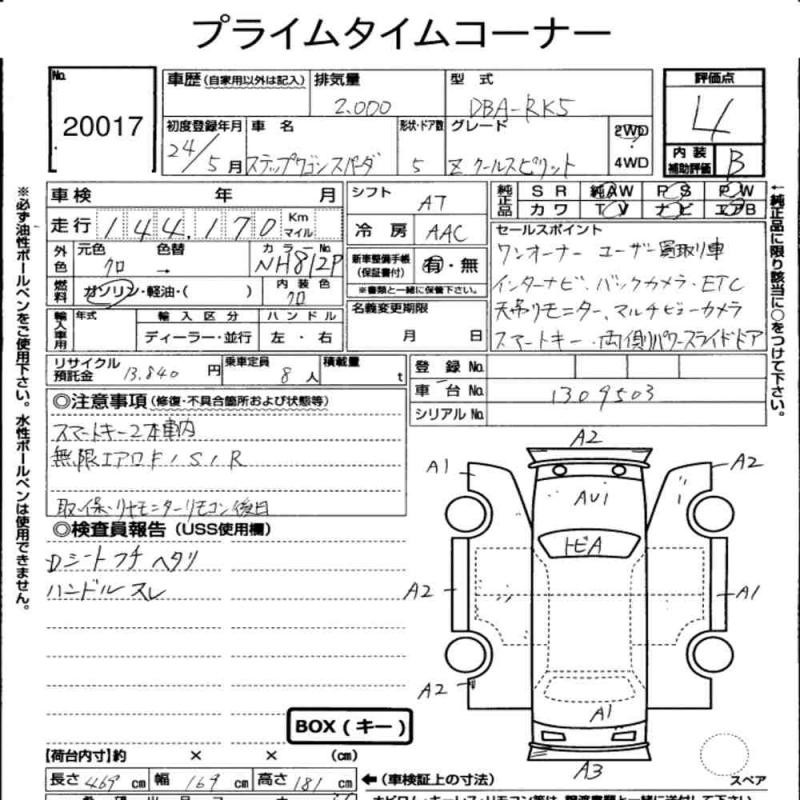 プライムタイムコーナー
No. 20017
車歴 (自家用以外は記入)
排気量 2.000
型式 DBA-RK5
評価点 4
初度登録年月 24/5月
車名 ステップワゴンスパーダ
形状・ドア数 5
グレード Z クールスピリット
2WD
4WD
内装補助評価 B
車検 年 月
シフト AT
純正品 SR 純AW PS PW
カワ TV ナビ エアB
走行 144.170 Km マイル
冷房 AAC
外色 元色 クロ 色替 →
カラーNo. NH812P
燃料 ガソリン・軽油・( )
内装色 クロ
新車整備手帳(保証書付) 有・無
※書類と一緒に保管下さい。
セールスポイント
ワンオーナー ユーザー買取り車
インターナビ、バックカメラ・ETC
天吊りモニター、マルチビューカメラ
スマートキー・両側パワースライドドア
輸入車用 年式 輸入区分 ハンドル
ディーラー・並行 左・右
名義変更期限 月 日
リサイクル預託金 13.840 円
乗車定員 8 人
積載量 t
登録No.
車台No. 1309503
シリアルNo.
◎注意事項 (修復・不具合箇所および状態等)
スマートキー2本車内
無限エアロF/S/R
取・保・リヤモニターリモコン後日
◎検査員報告 (USS使用欄)
Dシートフチ ヘタリ
ハンドル スレ
A2
A1
A2
AU1
トビA
A2
A1
A2
A1
A3
BOX (キー)
スペア
【荷台内寸】約 × × (cm)
長さ 469 cm 幅 169 cm 高さ 181 cm
←(車検証上の寸法)
※必ず油性ボールペンをご使用下さい。水性ボールペンは使用できません。
←純正品に限り該当に○をつけて下さい。